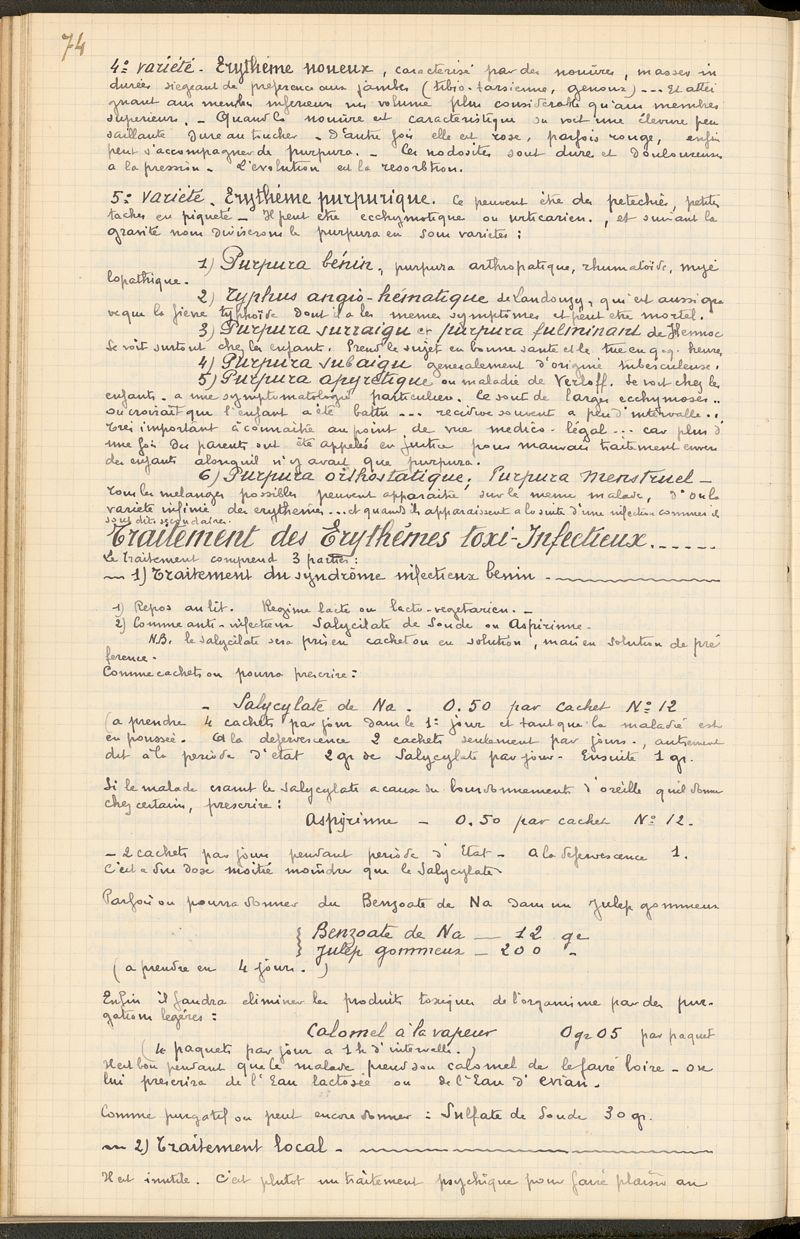 74
4e variété - Erythème noueux, caractérisé par des nouûres, masses in
durées siegeant de préférence aux jambes (tibio-tarsienne, genoux) --- Et attei
gnant aux membres inferieurs un volume plus considerable qu'aux membres
superieurs. - Quand la nouûre est caracteristique on voit une élevure peu
saillante dure au toucher - D'autre fois elle est rose, parfois rouge, enfin
peut s'accompagner de purpura. - Ces nodosités sont dures et douloureuses
a la pression - L'evolution est la resorbtion.
5e variété. Erythème purpurique. Ce peuvent être des petechies, petites
taches en piqueté - Il peut etre ecchymotique ou urticarien., et suivant la
gravité nous diviserons le purpura en 6 variétés :
1) Purpura bénin, purpura arthropatique, rhumatoïde, myé
lopathique.
2) Typhus angio-hématique de Landouzy, qui est aussi grave
que la fièvre typhoïde dont il a les memes symptomes et peut etre mortel.
3) Purpura suraigu et purpura fulminant de Hennoc
Se voit surtout chez les enfants. Prend le sujet en bonne santé et le tue en q.q. heures
4) Purpura subaigu generalement d'origine tuberculeuse.
5) Purpura apyrétique ou maladie de Verloff. Se voit chez les
enfants - a une symptomatologie particuliere. Ce sont de larges ecchymoses..
on croirait que l'enfant a été battu --- recidive souvent a peu d'intervalle..
Tres important à connaitre au point de vue medico-légal --- car plus d'
une fois des parents ont été appelés en justice pour mauvais traitement envers
des enfants alors qu'il n'y avait que purpura.
6) Purpura orthostatique, Purpura Menstruel -
Tous les melanges possibles peuvent apparaitre sur le meme malade, d'ou la
variété infinie des erythemes... et quand ils apparaissent a la suite d'une infection connue ils
sont dits secondaires.
Traitement des Erythêmes toxi-Infectieux......
Le traitement comprend 3 parties :
1) Traitement du syndrôme infectieux benin -
1) Repos au lit. Regime lacté ou lacto-vegetarien. -
2) Comme anti-infectieux Salycilate de Soude ou Aspirinne.
N.B. le salycilate sera pris en cachet ou en solution, mais en solution de pré
ference.
Comme cachets on pourra prescrire :
- Salycylate de Na. 0.50 par cachet No 12
(a prendre 4 cachets par jour dans le 1er jour et tant que la maladie est
en poussée. A la defervescence 2 cachets seulement par jours., autrement
dit à la periode d'etat 2 gr de Salycylate par jour - Ensuite 1 gr.
Si le malade craint le Salycylate a cause du bourdonnement d'oreille qu'il donne
chez certains, prescrire :
Aspirinne - 0.50 par cachet No 12.
- 2 cachets par jour pendant periode d'Etat - A la defervescence 1.
C'est a dire dose moitié moindre que le Salycylate
Parfois on pourra donner du Benzoate de Na dans un Julep gommeux
Benzoate de Na - 12 gr
Julep gommeux - 200 "
(a prendre en 4 jours.)
Enfin il faudra eliminer les produits toxiques de l'organisme par des pur-
gations legéres :
Calomel à la vapeur 0gr05 par paquet
(4 paquets par jour a 1h d'intervalle.)
Il est bon pendant que le malade prend son calomel de le faire boire - on
lui prescrira de l'Eau lactosée ou de l'Eau d'evian.
Comme purgatif on peut encore donner : Sulfate de Soude 30 gr.
2) Traitement local -
Il est inutile. C'est plutot un traitement psychique pour faire plaisir au